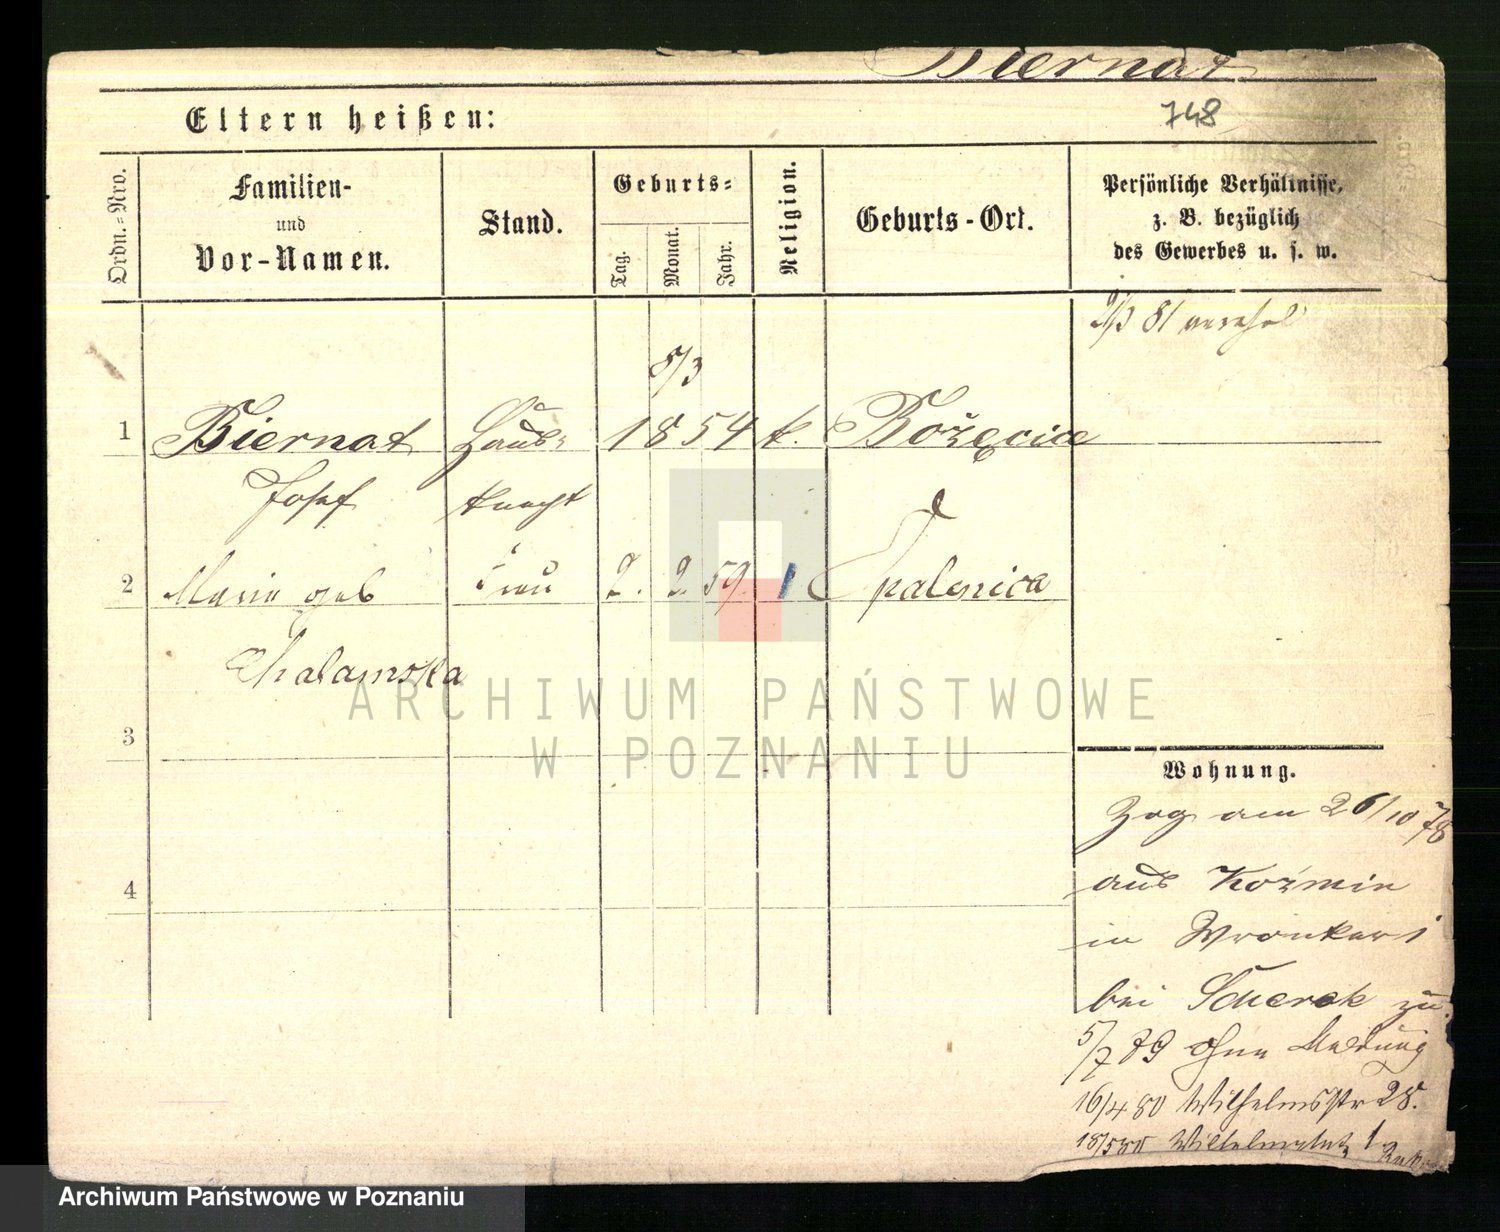 Biernat
748
Eltern heißen:
Ordn.-Nro.
Familien-
und
Vor-Namen.
Stand.
Geburts-
Tag.
Monat.
Jahr.
Religion.
Geburts-Ort.
Persönliche Verhältnisse,
z. B. bezüglich
des Gewerbes u. s. w.
9/3 81
5/3
1 Biernat Haus- 1854 k. Bożęcice
Josef knecht
2 Maria geb Frau 2. 2. 59. Opalenica
Chalamska
3
4
Wohnung.
Zog am 26/10 78
aus Koźmin
in Wronker 1
bei Scherek zu.
5/7 79 ohne Meldung
16/4 80 Wilhelmsstr 28.
18/5 80 Wilhelmsplatz 1
ARCHIWUM PAŃSTWOWE
W POZNANIU
Archiwum Państwowe w Poznaniu